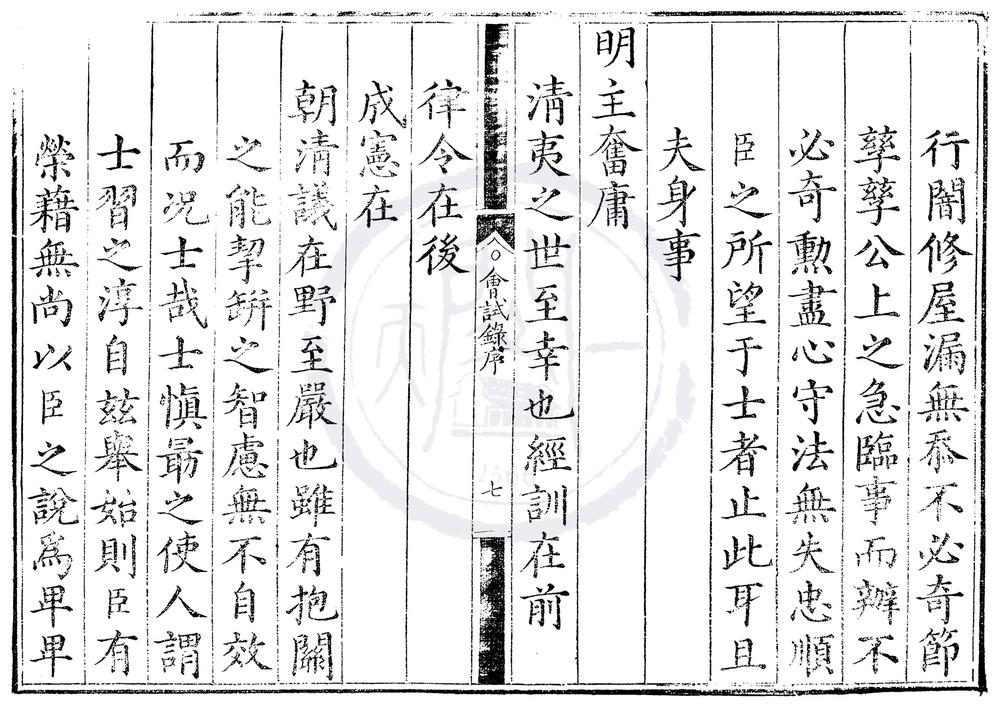 行闇修屋漏無忝不必奇節
孳孳公上之急臨事而辦不
必奇勳盡心守法無失忠順
臣之所望于士者止此耳且
夫身事
明主奮庸
淸夷之世至幸也經訓在前
會試錄序
七
律令在後
成憲在
朝淸議在野至嚴也雖有抱關
之能挈缾之智慮無不自效
而况士哉士愼勗之使人謂
士習之淳自玆舉始則臣有
榮藉無尚以臣之說爲𤰞𤰞